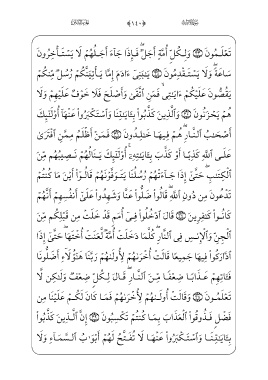 ﴿١٤٠﴾
تَعْلَمُونَ ۝ وَلِكُلِّ أُمَّةٍ أَجَلٌ ۖ فَإِذَا جَآءَ أَجَلُهُمْ لَا يَسْتَأْخِرُونَ
سَاعَةً ۖ وَلَا يَسْتَقْدِمُونَ ۝ يَـٰبَنِىٓ ءَادَمَ إِمَّا يَأْتِيَنَّكُمْ رُسُلٌ مِّنكُمْ
يَقُصُّونَ عَلَيْكُمْ ءَايَـٰتِى ۙ فَمَنِ ٱتَّقَىٰ وَأَصْلَحَ فَلَا خَوْفٌ عَلَيْهِمْ وَلَا
هُمْ يَحْزَنُونَ ۝ وَٱلَّذِينَ كَذَّبُوا۟ بِـَٔايَـٰتِنَا وَٱسْتَكْبَرُوا۟ عَنْهَآ أُو۟لَـٰٓئِكَ
أَصْحَـٰبُ ٱلنَّارِ ۖ هُمْ فِيهَا خَـٰلِدُونَ ۝ فَمَنْ أَظْلَمُ مِمَّنِ ٱفْتَرَىٰ
عَلَى ٱللَّهِ كَذِبًا أَوْ كَذَّبَ بِـَٔايَـٰتِهِۦٓ ۚ أُو۟لَـٰٓئِكَ يَنَالُهُمْ نَصِيبُهُم مِّنَ
ٱلْكِتَـٰبِ ۖ حَتَّىٰٓ إِذَا جَآءَتْهُمْ رُسُلُنَا يَتَوَفَّوْنَهُمْ قَالُوٓا۟ أَيْنَ مَا كُنتُمْ
تَدْعُونَ مِن دُونِ ٱللَّهِ ۖ قَالُوا۟ ضَلُّوا۟ عَنَّا وَشَهِدُوا۟ عَلَىٰٓ أَنفُسِهِمْ أَنَّهُمْ
كَانُوا۟ كَـٰفِرِينَ ۝ قَالَ ٱدْخُلُوا۟ فِىٓ أُمَمٍ قَدْ خَلَتْ مِن قَبْلِكُم مِّنَ
ٱلْجِنِّ وَٱلْإِنسِ فِى ٱلنَّارِ ۖ كُلَّمَا دَخَلَتْ أُمَّةٌ لَّعَنَتْ أُخْتَهَا ۖ حَتَّىٰٓ إِذَا
ٱدَّارَكُوا۟ فِيهَا جَمِيعًا قَالَتْ أُخْرَىٰهُمْ لِأُولَىٰهُمْ رَبَّنَا هَـٰٓؤُلَآءِ أَضَلُّونَا
فَـَٔاتِهِمْ عَذَابًا ضِعْفًا مِّنَ ٱلنَّارِ ۖ قَالَ لِكُلٍّ ضِعْفٌ وَلَـٰكِن لَّا
تَعْلَمُونَ ۝ وَقَالَتْ أُولَىٰهُمْ لِأُخْرَىٰهُمْ فَمَا كَانَ لَكُمْ عَلَيْنَا مِن
فَضْلٍ فَذُوقُوا۟ ٱلْعَذَابَ بِمَا كُنتُمْ تَكْسِبُونَ ۝ إِنَّ ٱلَّذِينَ كَذَّبُوا۟
بِـَٔايَـٰتِنَا وَٱسْتَكْبَرُوا۟ عَنْهَا لَا تُفَتَّحُ لَهُمْ أَبْوَٰبُ ٱلسَّمَآءِ وَلَا